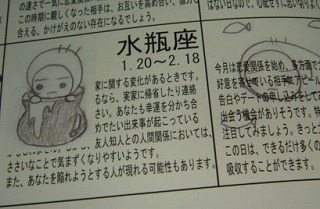 の速さで一気に恋愛関係
この時期に親しくなった相手は、お互いを高め合い、協力
合える、かけがえのない存在になるでしょう。
水瓶座
1.20〜2.18
家に関する変化があるときです。
るなら、実家に帰省したり連絡
さい。あなたも幸運を分かち合
めでたい出来事が起こっている
友人知人との人間関係においては、
ささいなことで気まずくなりやすいようです。
また、あなたを陥れようとする人が現れる可能性もあります。
今月は恋愛関係を始め、多方面で
好意を寄せている相手にアピール
告白やデートの申し込みをして
出会う機会がありそうです。特
注目してみましょう。きっと
この日は、できるだけ多くの
吸収することができます。